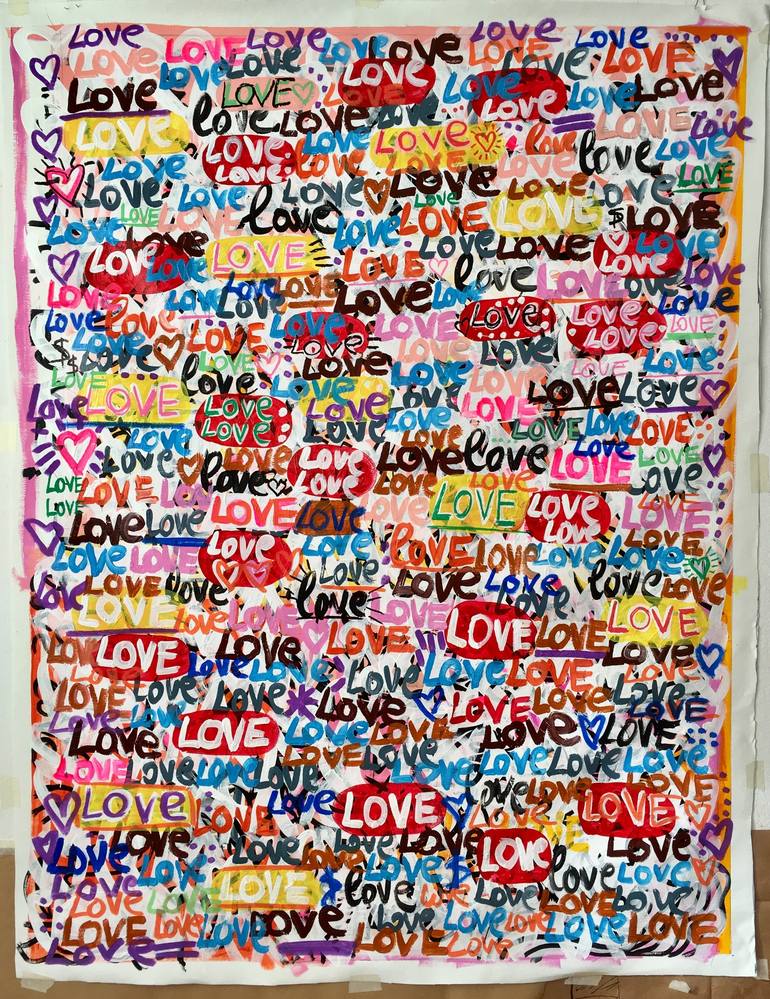 Love LOVE Love Love Love LOVE LOVE LOVE
LOVE LOVE LOVE LOVE LOVE LOVE LOVE
LOVE LOVE LOVE LOVE LOVE LOVE LOVE
LOVE love LOVE LOVE LOVE LOVE Love
LOVE LOVE LOVE LOVE love love LOVE
LOVE LOVE LOVE LOVE LOVE LOVE LOVE
LOVE LOVE LOVE LOVE LOVE LOVE LOVE LOVE
LOVE LOVE love LOVE LOVE LOVE $ LOVE
LOVE LOVE LOVE LOVE LOVE LOVE LOVE
LOVE LOVE LOVE LOVE love LOVE LOVE
LOVE LOVE LOVE LOVE LOVE LOVE LOVE
LOVE LOVE LOVE LOVE LOVE LOVE LOVE LOVE
$ $ LOVE LOVE LOVE LOVE LOVE LOVE
LOVE LOVE love LOVE LOVE LOVE LOVE LOVE
Love LOVE LOVE LOVE LOVE LOVE LOVE LOVE
LOVE LOVE LOVE LOVE LOVE LOVE LOVE
LOVE LOVE LOVE LOVE love LOVE LOVE LOVE
LOVE LOVE love LOVE LOVE LOVE LOVE
LOVE LOVE LOVE LOVE LOVE LOVE LOVE
LOVE LOVE LOVE LOVE LOVE LOVE LOVE
LOVE LOVE LOVE LOVE LOVE LOVE LOVE
LOVE LOVE love LOVE LOVE love LOVE
LOVE love LOVE love LOVE LOVE LOVE
LOVE LOVE LOVE LOVE LOVE LOVE LOVE
LOVE LOVE LOVE LOVE LOVE LOVE LOVE
LOVE LOVE LOVE LOVE LOVE LOVE LOVE
LOVE LOVE LOVE LOVE LOVE LOVE LOVE
LOVE LOVE LOVE LOVE LOVE LOVE LOVE
LOVE LOVE LOVE LOVE LOVE LOVE LOVE
LOVE LOVE LOVE LOVE LOVE LOVE
LOVE LOVE LOVE LOVE LOVE LOVE LOVE
LOVE LOVE LOVE LOVE $ LOVE love LOVE
LOVE LOVE LOVE $ love LOVE LOVE LOVE
LOVE LOVE LOVE LOVE LOVE LOVE LOVE LOVE
Love LOVE LOVE